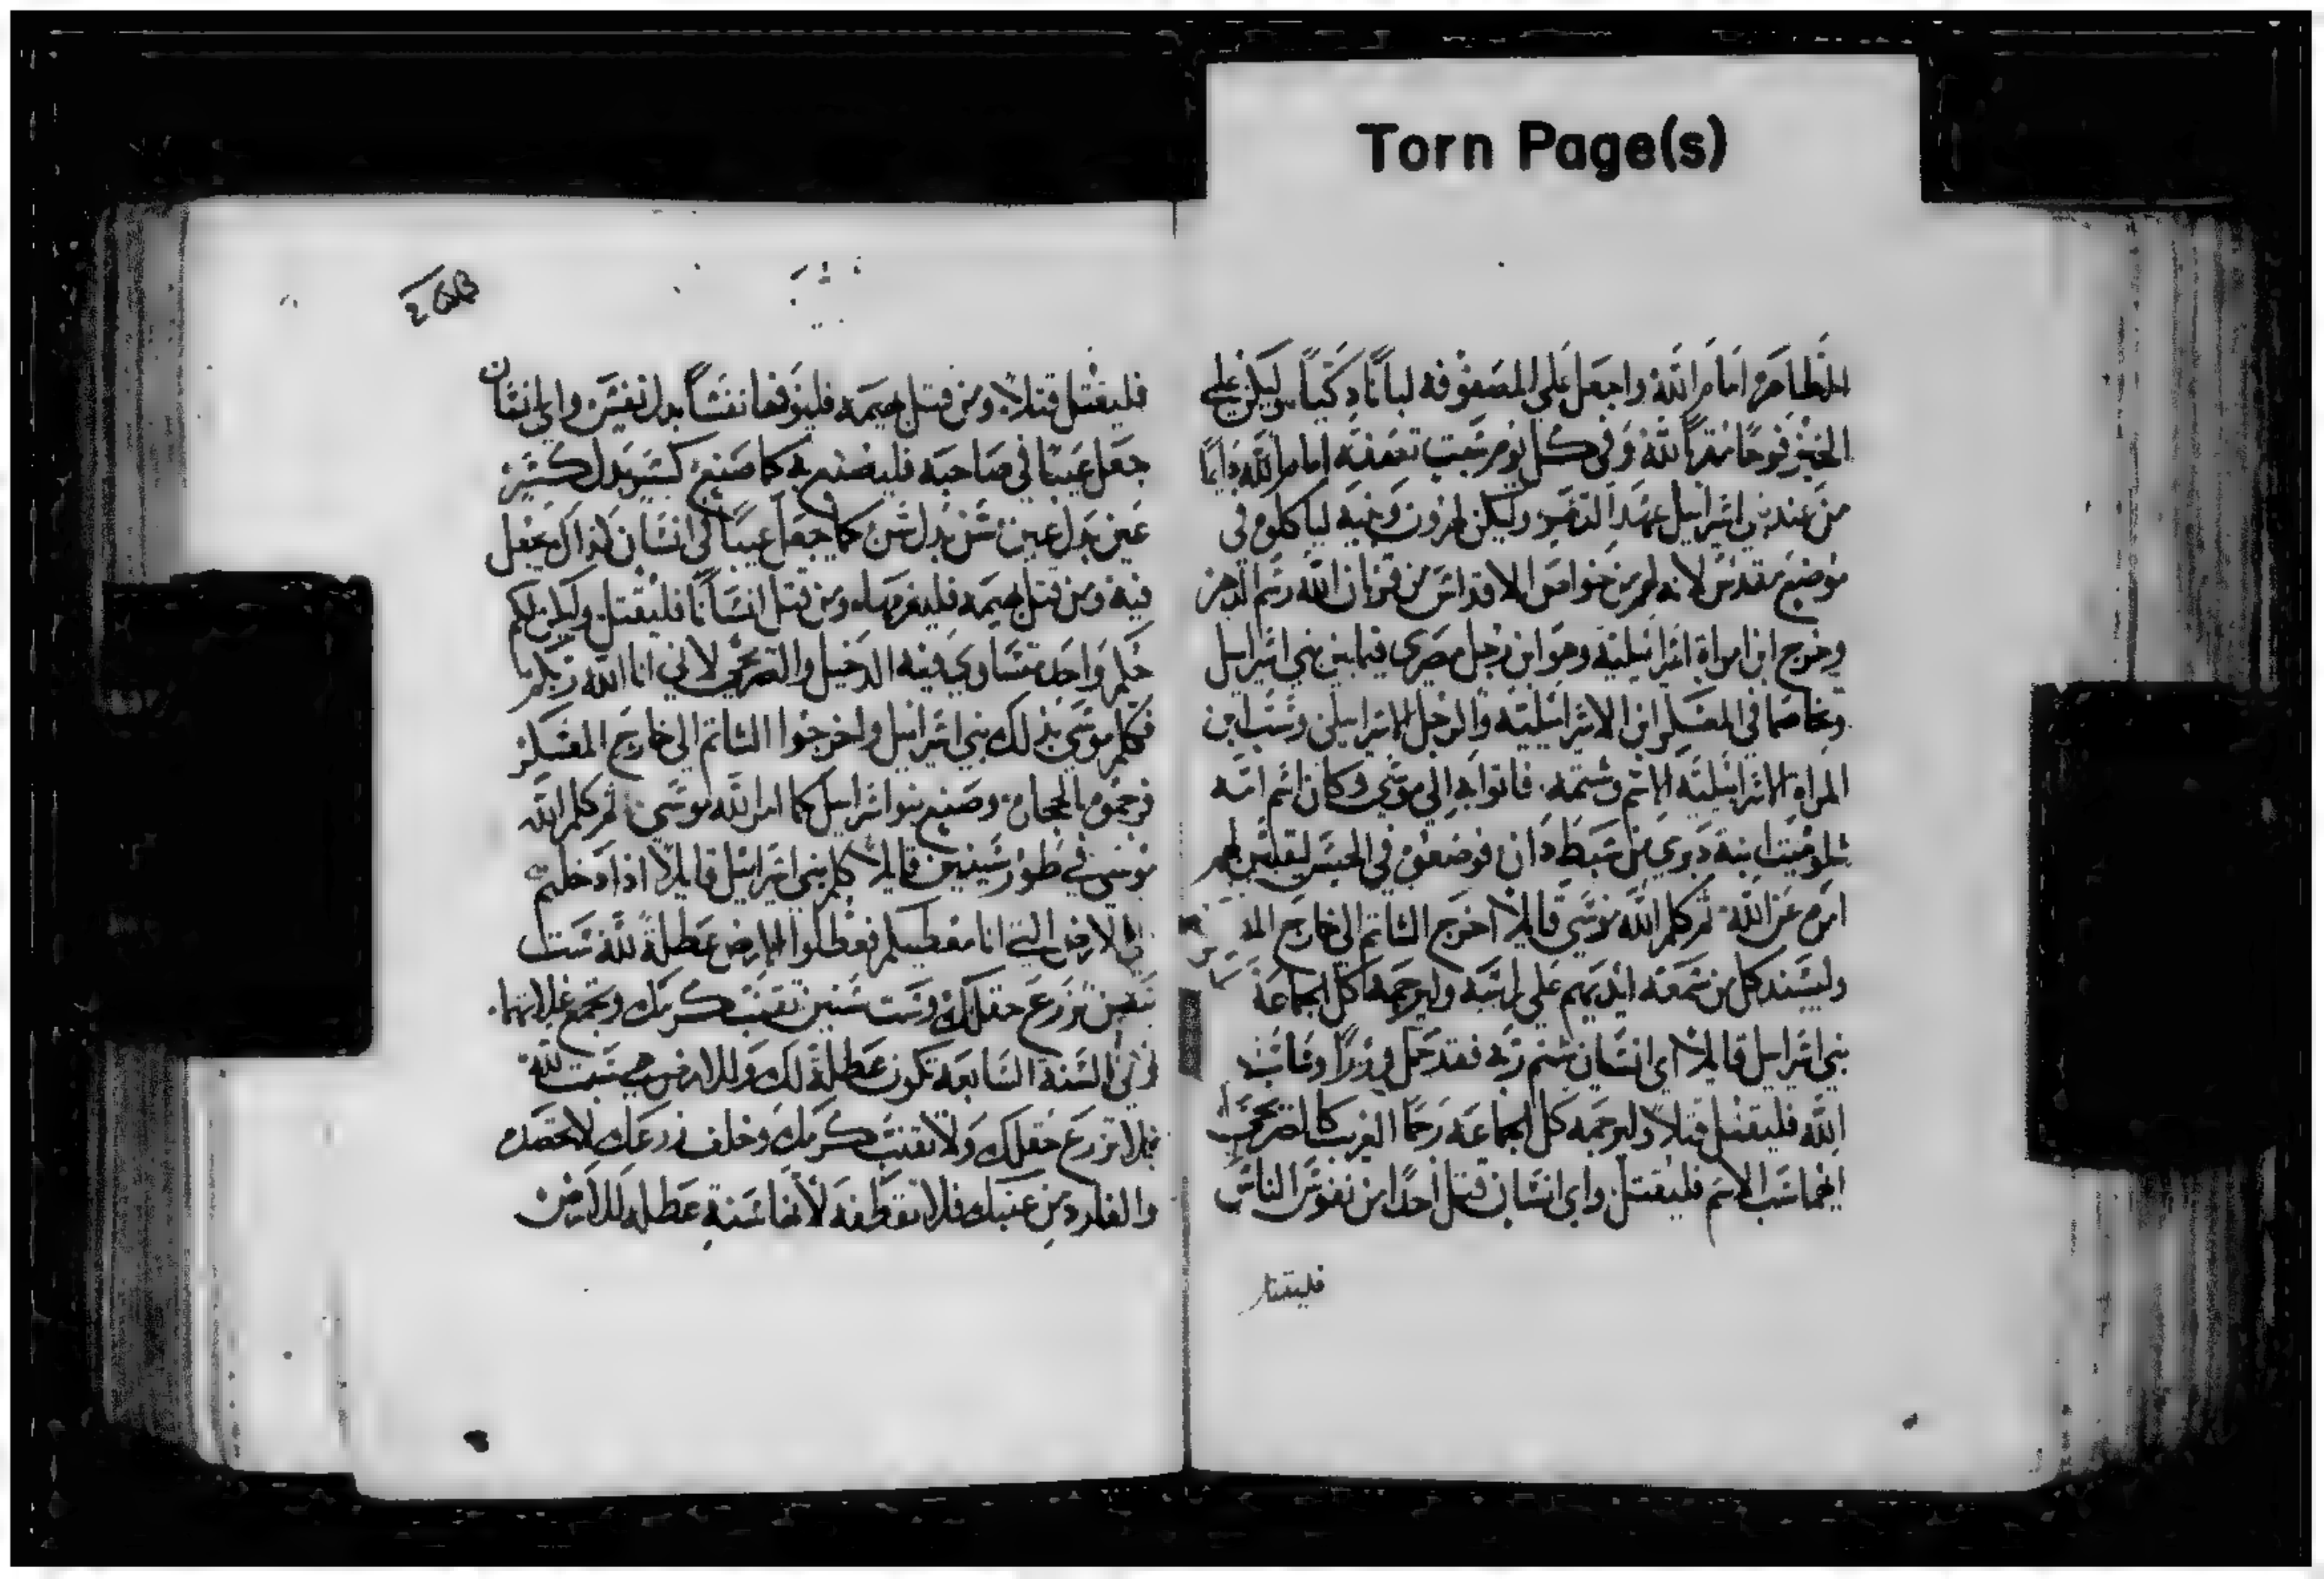 Torn Page(s)
الطاهره امام الله واجعل علي المصفوفه لباناً دكياً ليكن علي
الخبز فوحاً مقرباً لله وفي كل يوم سبت تعفنه امام الله دايماً
من عند بني اسراييل عهد الدهر وليكن لهرون وبنيه لياكلوه في
موضع مقدس لانه لهم من خواص الاقداس من قربان الله رسم الدهر
وخرج ابن امراة اسراييلية وهو ابن رجل مصري فيمابين بني اسراييل
وتخاصما في العسكر ابن الاسراييلية والرجل الاسراييلي وسب ابن
المراة الاسراييلية الاسم وشتمه فاتوا به الي موسي وكان اسم امه
شلوميت ابنة دبري من سبط دان فوضعوه في الحبس ليتبين لهم
امره عن الله ثم كلم الله موسي قايلاً اخرج الشاتم الي خارج
وليسند كل من سمعه ايديهم علي راسه وليرجمه كل الجماعة
بني اسراييل قايلاً اي انسان شتم ربه فقد حمل وزراً
الله فليقتل قتلاً وليرجمه كل الجماعة رجماً الغريب كالصريح
ايهما سب الاسم فليقتل واي انسان قتل احداً من نفوس الناس
فليقتل
فليقتل قتلاً ومن قتل بهيمه فليوفها نفساً بدل نفس واي انسان
جعل عيباً في صاحبه فليصنع به كما صنع كسر بدل كسر
عين بدل عين سن بدل سن كما جعل عيباً في انسان كذاك يجعل
فيه ومن قتل بهيمه فليغرمها ومن قتل انساناً فليقتل وليكن لكم
حكم واحد تتساوي فيه الدخيل والصريح لاني انا الله ربكم
فكلم موسي بذلك بني اسراييل واخرجوا الشاتم الي خارج العسكر
فرجموه بالحجاره وصنع بنو اسراييل كما امر الله موسي ثم كلم الله
موسي في طور سينين قايلاً كلم بني اسراييل قايلاً اذا دخلتم
الي الارض التي انا معطيكم فعطلوا الارض عطلة لله ست
سنين تزرع حقلك وست سنين تقنب كرمك وتجمع غلاتهما
وفي السنة السابعة تكون عطلة لك وللارض هي سبت لله
فلا تزرع حقلك ولا تقنب كرمك وخلف زرعك لا تحصده
من عنبك فلا تقطفه لانها سنة عطله للارض